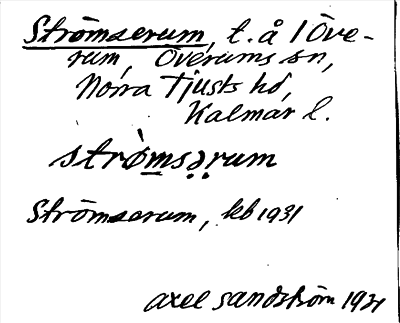 Strömserum, t. å 1 Öve-
rum, Överums sn,
Norra Tjusts hd,
Kalmar l.
strömsərum
Strömserum, kb 1931
Axel Sandström 1921